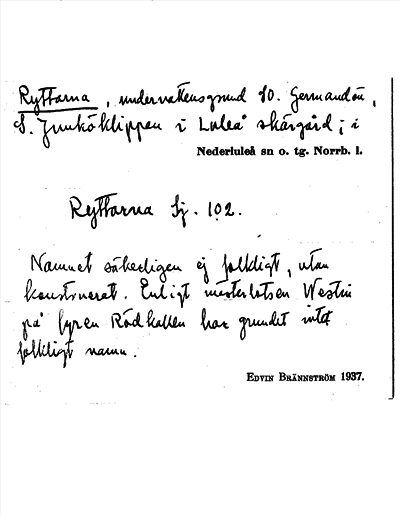 Ryttarna, undervattensgrund SO. Germandön,
S. Junköklippan i Luleå skärgård; i
Nederluleå sn o. tg. Norrb. l.
Ryttarna Sj. 102.
Namnet säkerligen ej folkligt, utan
konstruerat. Enligt mästerlotsen Westin
på fyren Rödkallen har grundet intet
folkligt namn.
EDVIN BRÄNNSTRÖM 1937.